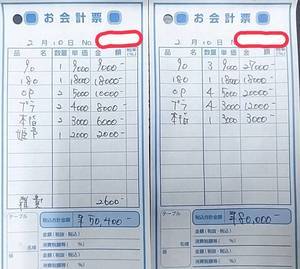 お会計票
2月10日 No.
品名 数量 単価 金額
90 1 9000 9000-
180 1 18000 18000-
OP 2 5000 10000-
プラ 2 4000 8000-
本指 2 3000 6000-
姫予 1 2000 2000-
雑費 2600-
テーブル 税込合計金額 ¥50,400-
名様 金額(税抜・税込)
消費税額等( %)
金額(税抜・税込)
消費税額等( %)
お会計票
2月10日
品名 数量 単価 金額
90 3 9000 27000-
180 1 18000 18000-
OP 4 5000 20000-
プラ 4 3000 12000-
本指 1 3000 3000-
テーブル 税込合計金額 ¥80,000-
名様 金額(税抜・税込)
消費税額等( %)
金額(税抜・税込)
消費税額等( %)